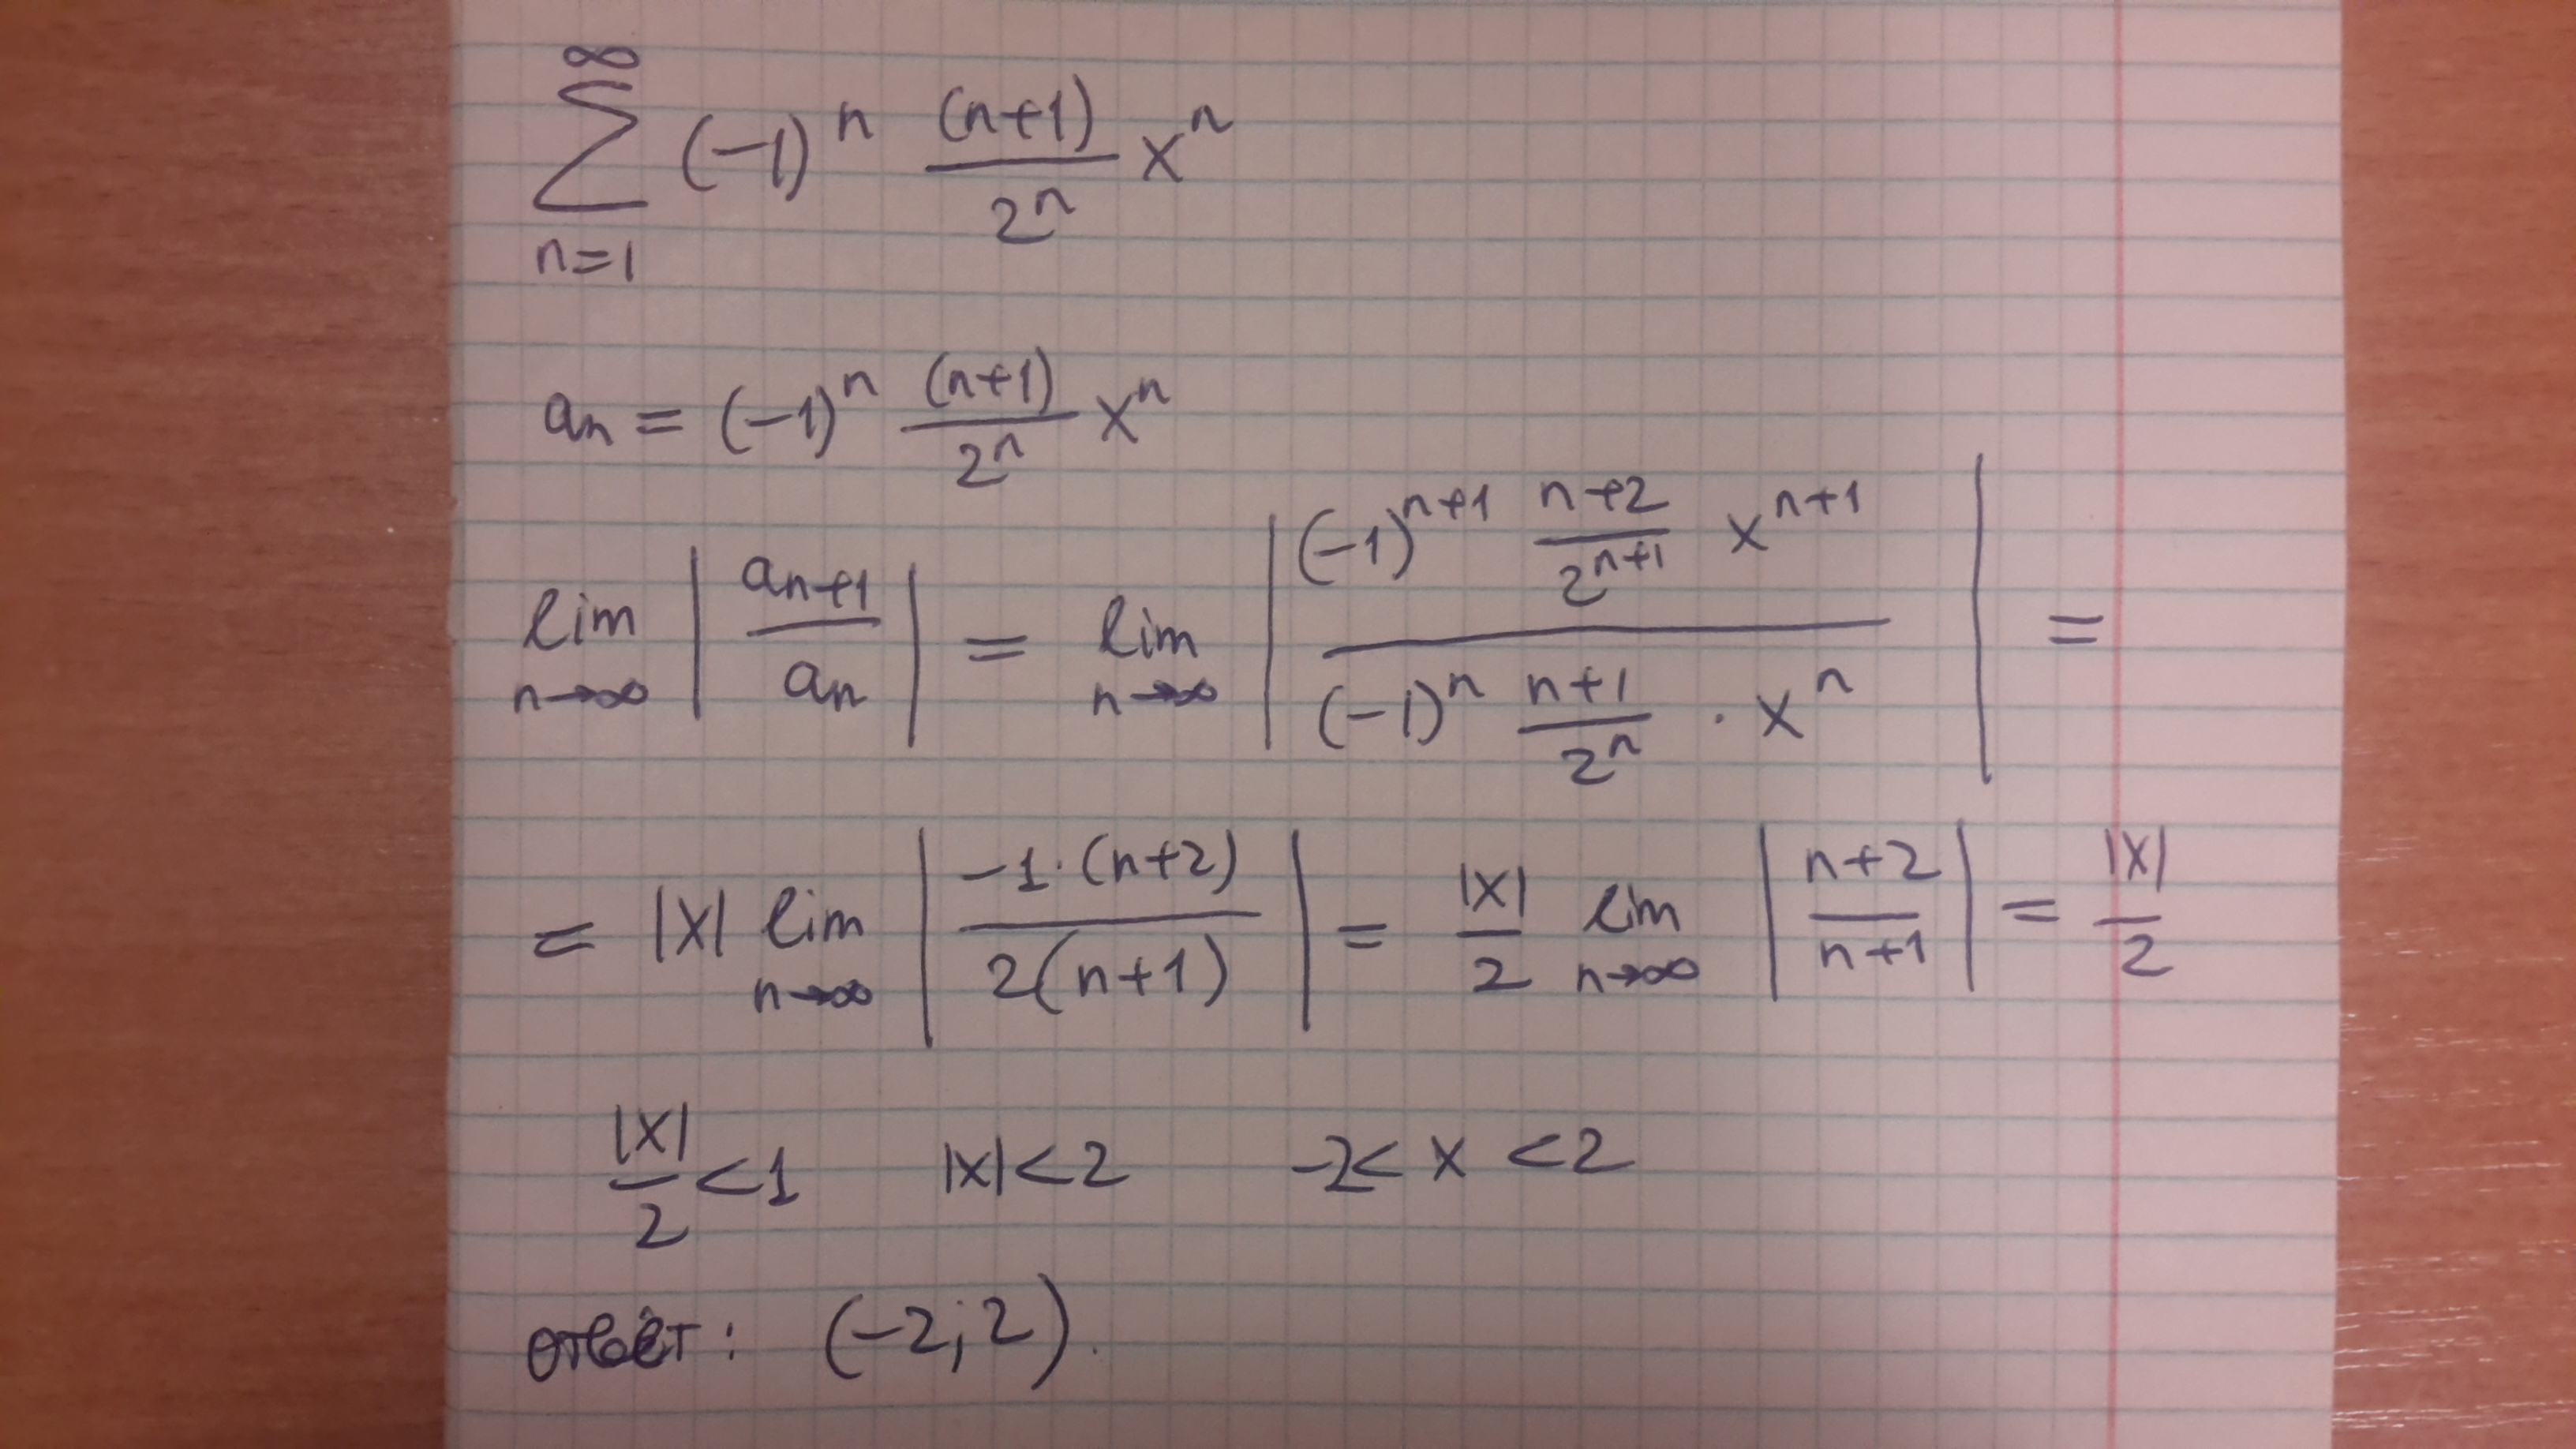 ∞
∑ (-1)^n (n+1)/2^n x^n
n=1
a_n = (-1)^n (n+1)/2^n x^n
lim_{n→∞} |a_{n+1}/a_n| = lim_{n→∞} |((-1)^{n+1} (n+2)/2^{n+1} x^{n+1})/((-1)^n (n+1)/2^n · x^n)| =
= |x| lim_{n→∞} |(-1·(n+2))/(2(n+1))| = |x|/2 lim_{n→∞} |(n+2)/(n+1)| = |x|/2
|x|/2 < 1 |x| < 2 -2 < x < 2
ответ: (-2; 2).